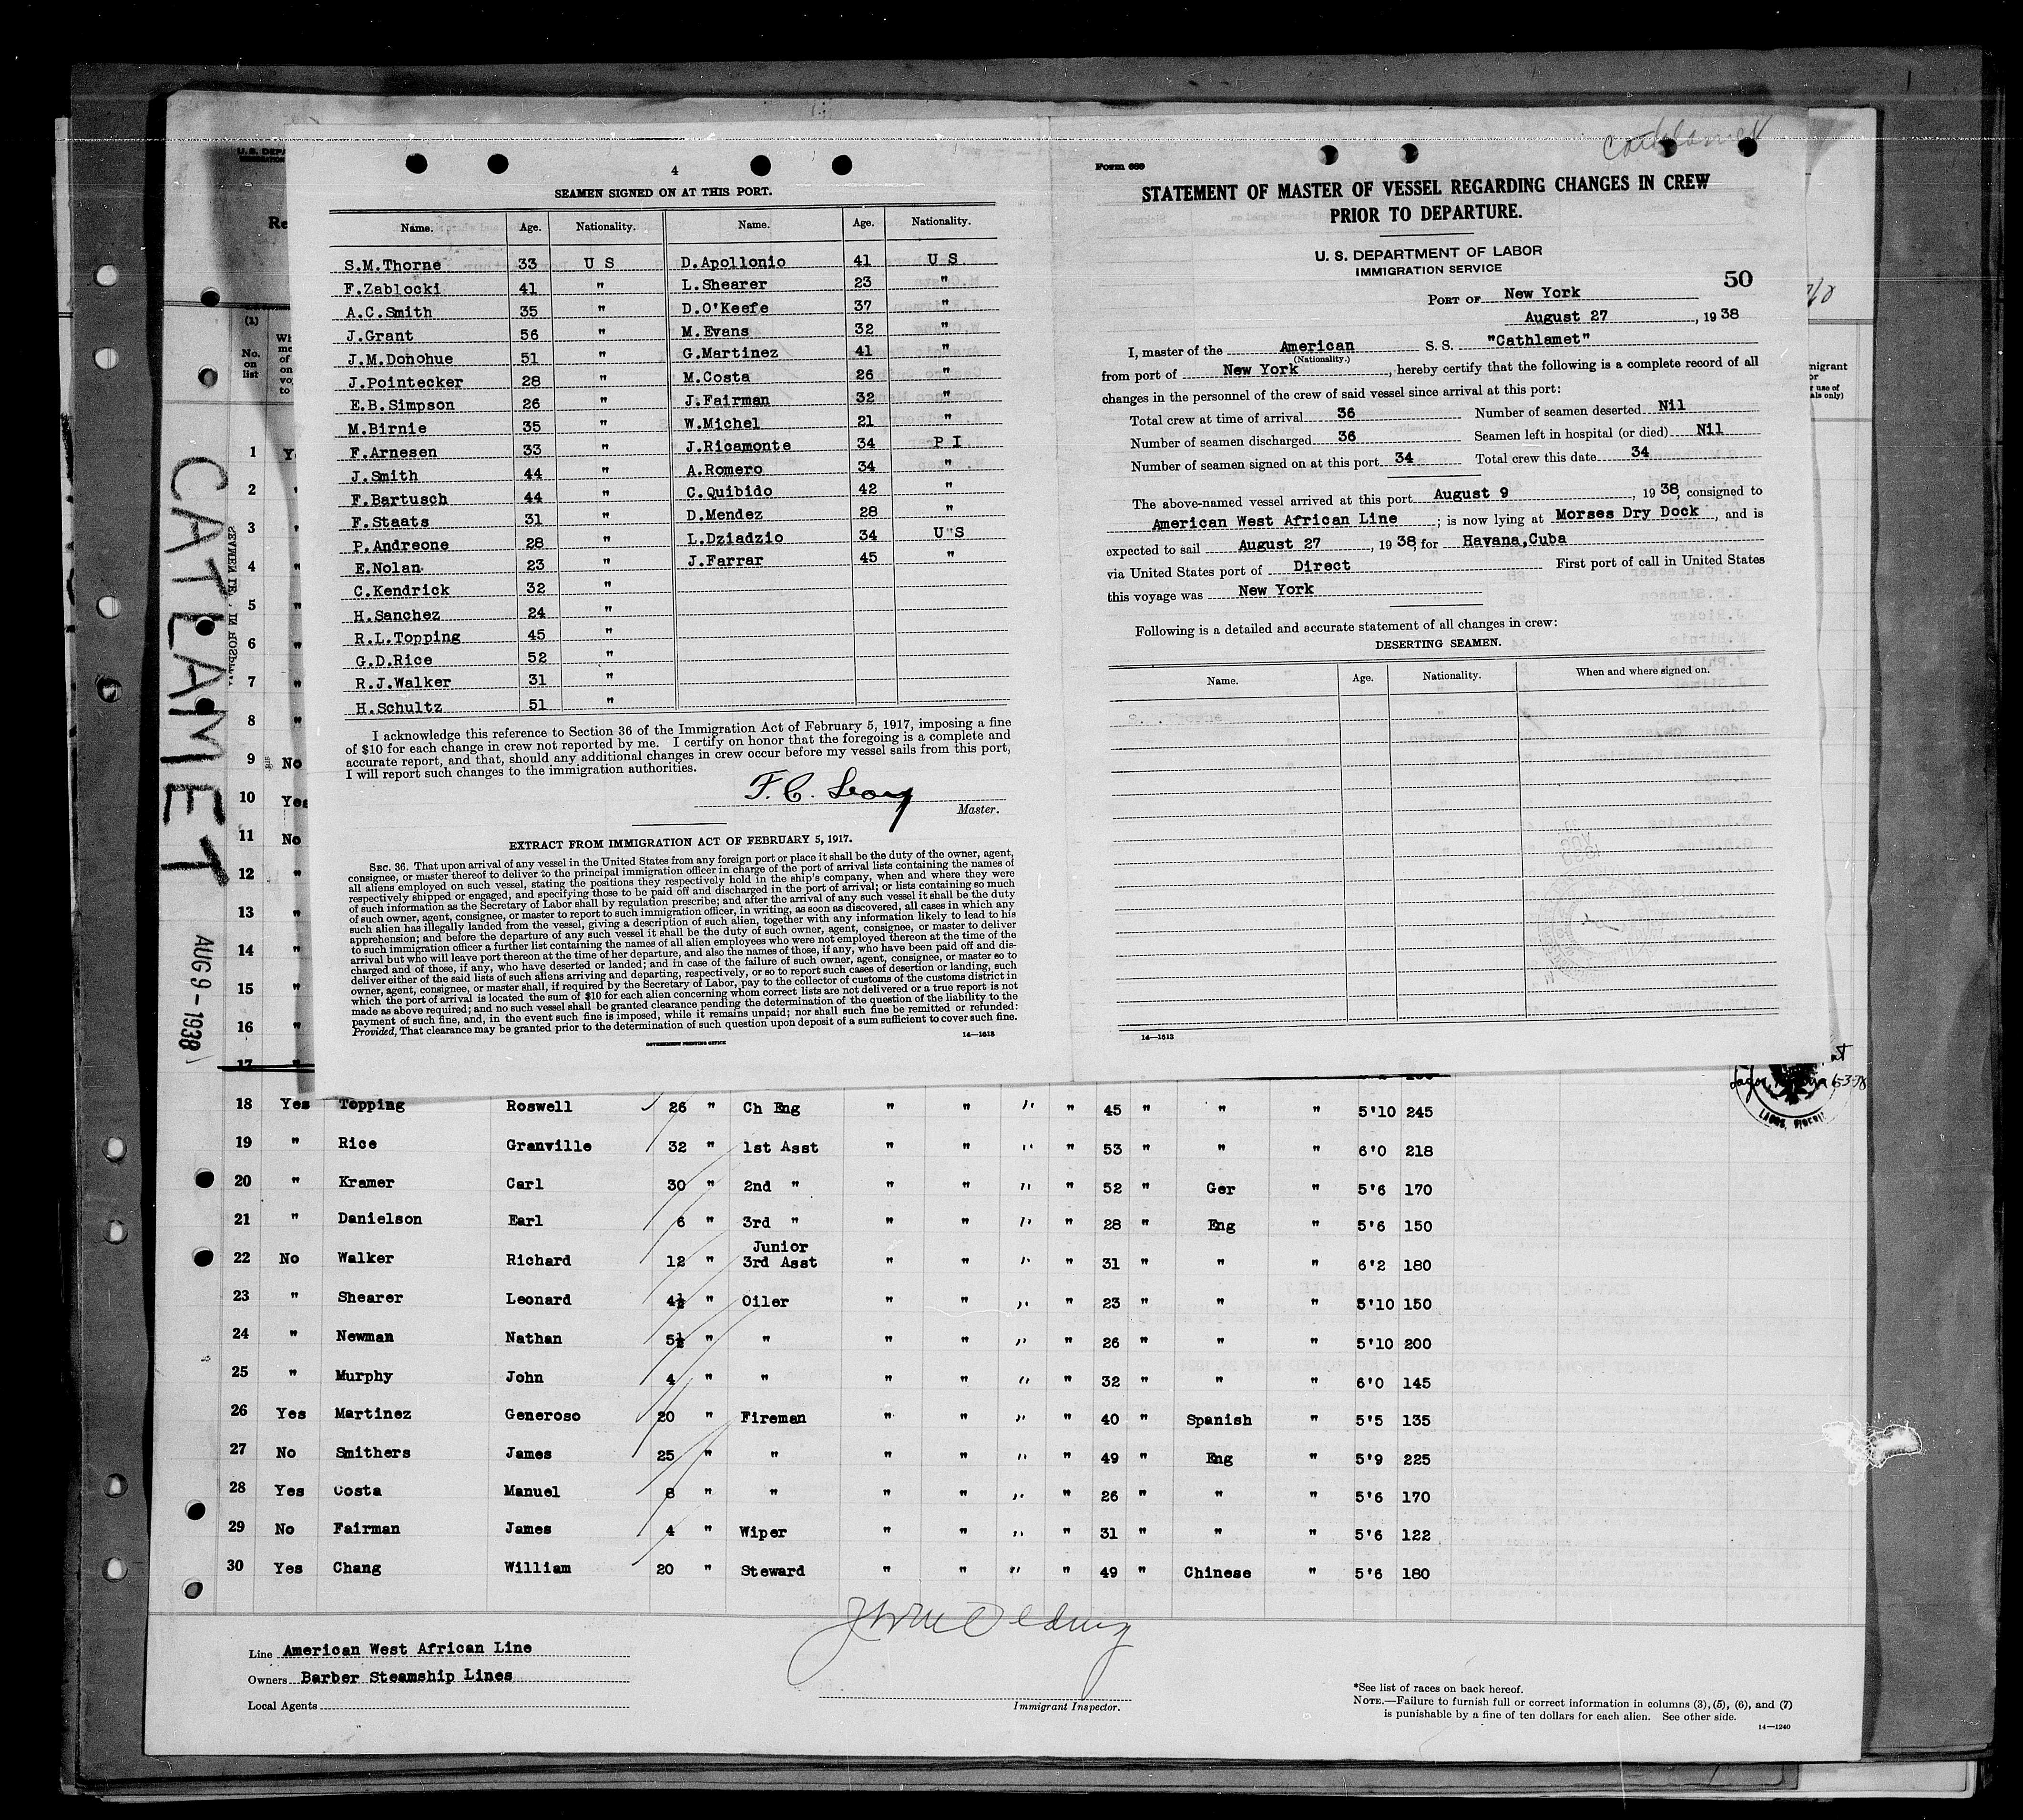 4
SEAMEN SIGNED ON AT THIS PORT.
Name. Age. Nationality. Name. Age. Nationality.
S.M.Thorne 33 U S D.Apollonio 41 U S
F.Zablocki 41 " L.Shearer 23 "
A.C.Smith 35 " D.O'Keefe 37 "
J.Grant 56 " M.Evans 32 "
J.M.Donohue 51 " G.Martinez 41 "
J.Pointecker 28 " M.Costa 26 "
E.B.Simpson 26 " J.Fairman 32 "
M.Birnie 35 " W.Michel 21 "
F.Arnesen 33 " J.Ricamonte 34 P I
J.Smith 44 " A.Romero 34 "
F.Bartusch 44 " C.Quibido 42 "
F.Staats 31 " D.Mendez 28 "
P.Andreone 28 " L.Dziadzio 34 U"S
E.Nolan 23 " J.Farrar 45 "
C.Kendrick 32 "
H.Sanchez 24 "
R.L.Topping 45 "
G.D.Rice 52 "
R.J.Walker 31 "
H.Schultz 51 "
I acknowledge this reference to Section 36 of the Immigration Act of February 5, 1917, imposing a fine
of $10 for each change in crew not reported by me. I certify on honor that the foregoing is a complete and
accurate report, and that, should any additional changes in crew occur before my vessel sails from this port,
I will report such changes to the immigration authorities.
F. C.
Master.
EXTRACT FROM IMMIGRATION ACT OF FEBRUARY 5, 1917.
SEC. 36. That upon arrival of any vessel in the United States from any foreign port or place it shall be the duty of the owner, agent,
consignee, or master thereof to deliver to the principal immigration officer in charge of the port of arrival lists containing the names of
all aliens employed on such vessel, stating the positions they respectively hold in the ship's company, when and where they were
respectively shipped or engaged, and specifying those to be paid off and discharged in the port of arrival; or lists containing so much
of such information as the Secretary of Labor shall by regulation prescribe; and after the arrival of any such vessel it shall be the duty
of such owner, agent, consignee, or master to report to such immigration officer, in writing, as soon as discovered, all cases in which any
such alien has illegally landed from the vessel, giving a description of such alien, together with any information likely to lead to his
apprehension; and before the departure of any such vessel it shall be the duty of such owner, agent, consignee, or master to deliver
to such immigration officer a further list containing the names of all alien employees who were not employed thereon at the time of the
arrival but who will leave port thereon at the time of her departure, and also the names of those, if any, who have been paid off and dis-
charged and of those, if any, who have deserted or landed; and in case of the failure of such owner, agent, consignee, or master so to
deliver either of the said lists of such aliens arriving and departing, respectively, or so to report such cases of desertion or landing, such
owner, agent, consignee, or master shall, if required by the Secretary of Labor, pay to the collector of customs of the customs district in
which the port of arrival is located the sum of $10 for each alien concerning whom correct lists are not delivered or a true report is not
made as above required; and no such vessel shall be granted clearance pending the determination of the question of the liability to the
payment of such fine, and, in the event such fine is imposed, while it remains unpaid; nor shall such fine be remitted or refunded:
Provided, That clearance may be granted prior to the determination of such question upon deposit of a sum sufficient to cover such fine.
14—1613
GOVERNMENT PRINTING OFFICE
Cathlamet
Form 689
STATEMENT OF MASTER OF VESSEL REGARDING CHANGES IN CREW
PRIOR TO DEPARTURE.
U. S. DEPARTMENT OF LABOR
IMMIGRATION SERVICE
50
PORT OF New York
August 27, 1938
I, master of the American S. S. "Cathlamet"
(Nationality.)
from port of New York, hereby certify that the following is a complete record of all
changes in the personnel of the crew of said vessel since arrival at this port:
Total crew at time of arrival 36 Number of seamen deserted Nil
Number of seamen discharged 36 Seamen left in hospital (or died) Nil
Number of seamen signed on at this port 34 Total crew this date 34
The above-named vessel arrived at this port August 9, 1938, consigned to
American West African Line; is now lying at Morses Dry Dock, and is
expected to sail August 27, 1938, for Havana,Cuba
via United States port of Direct First port of call in United States
this voyage was New York
Following is a detailed and accurate statement of all changes in crew:
DESERTING SEAMEN.
Name. Age. Nationality. When and where signed on.
14—1613
CATLAMET
AUG 9 - 1938
(1)
No.
on
list
1
2 "
3 "
4 "
5 "
6 "
7 "
8 "
9 No
10 Yes
11 No
12 "
13 "
14 "
15 "
16 "
17 "
18 Yes Topping Roswell 26 " Ch Eng " " " " 45 " " " 5'10 245
19 " Rice Granville 32 " 1st Asst " " " " 53 " " " 6'0 218
20 " Kramer Carl 30 " 2nd " " " " " 52 " Ger " 5'6 170
21 " Danielson Earl 6 " 3rd " " " " " 28 " Eng " 5'6 150
Junior
22 No Walker Richard 12 " 3rd Asst " " " " 31 " " " 6'2 180
23 " Shearer Leonard 4½ " Oiler " " " " 23 " " " 5'10 150
24 " Newman Nathan 5½ " " " " " " 26 " " " 5'10 200
25 " Murphy John 4 " " " " " " 32 " " " 6'0 145
26 Yes Martinez Generoso 20 " Fireman " " " " 40 " Spanish " 5'5 135
27 No Smithers James 25 " " " " " " 49 " Eng " 5'9 225
28 Yes Costa Manuel 8 " " " " " " 26 " " " 5'6 170
29 No Fairman James 4 " Wiper " " " " 31 " " " 5'6 122
30 Yes Chang William 20 " Steward " " " " 49 " Chinese " 5'6 180
Line American West African Line
Owners Barber Steamship Lines
Local Agents
Immigrant Inspector.
*See list of races on back hereof.
NOTE.—Failure to furnish full or correct information in columns (3), (5), (6), and (7)
is punishable by a fine of ten dollars for each alien. See other side.
14—1240